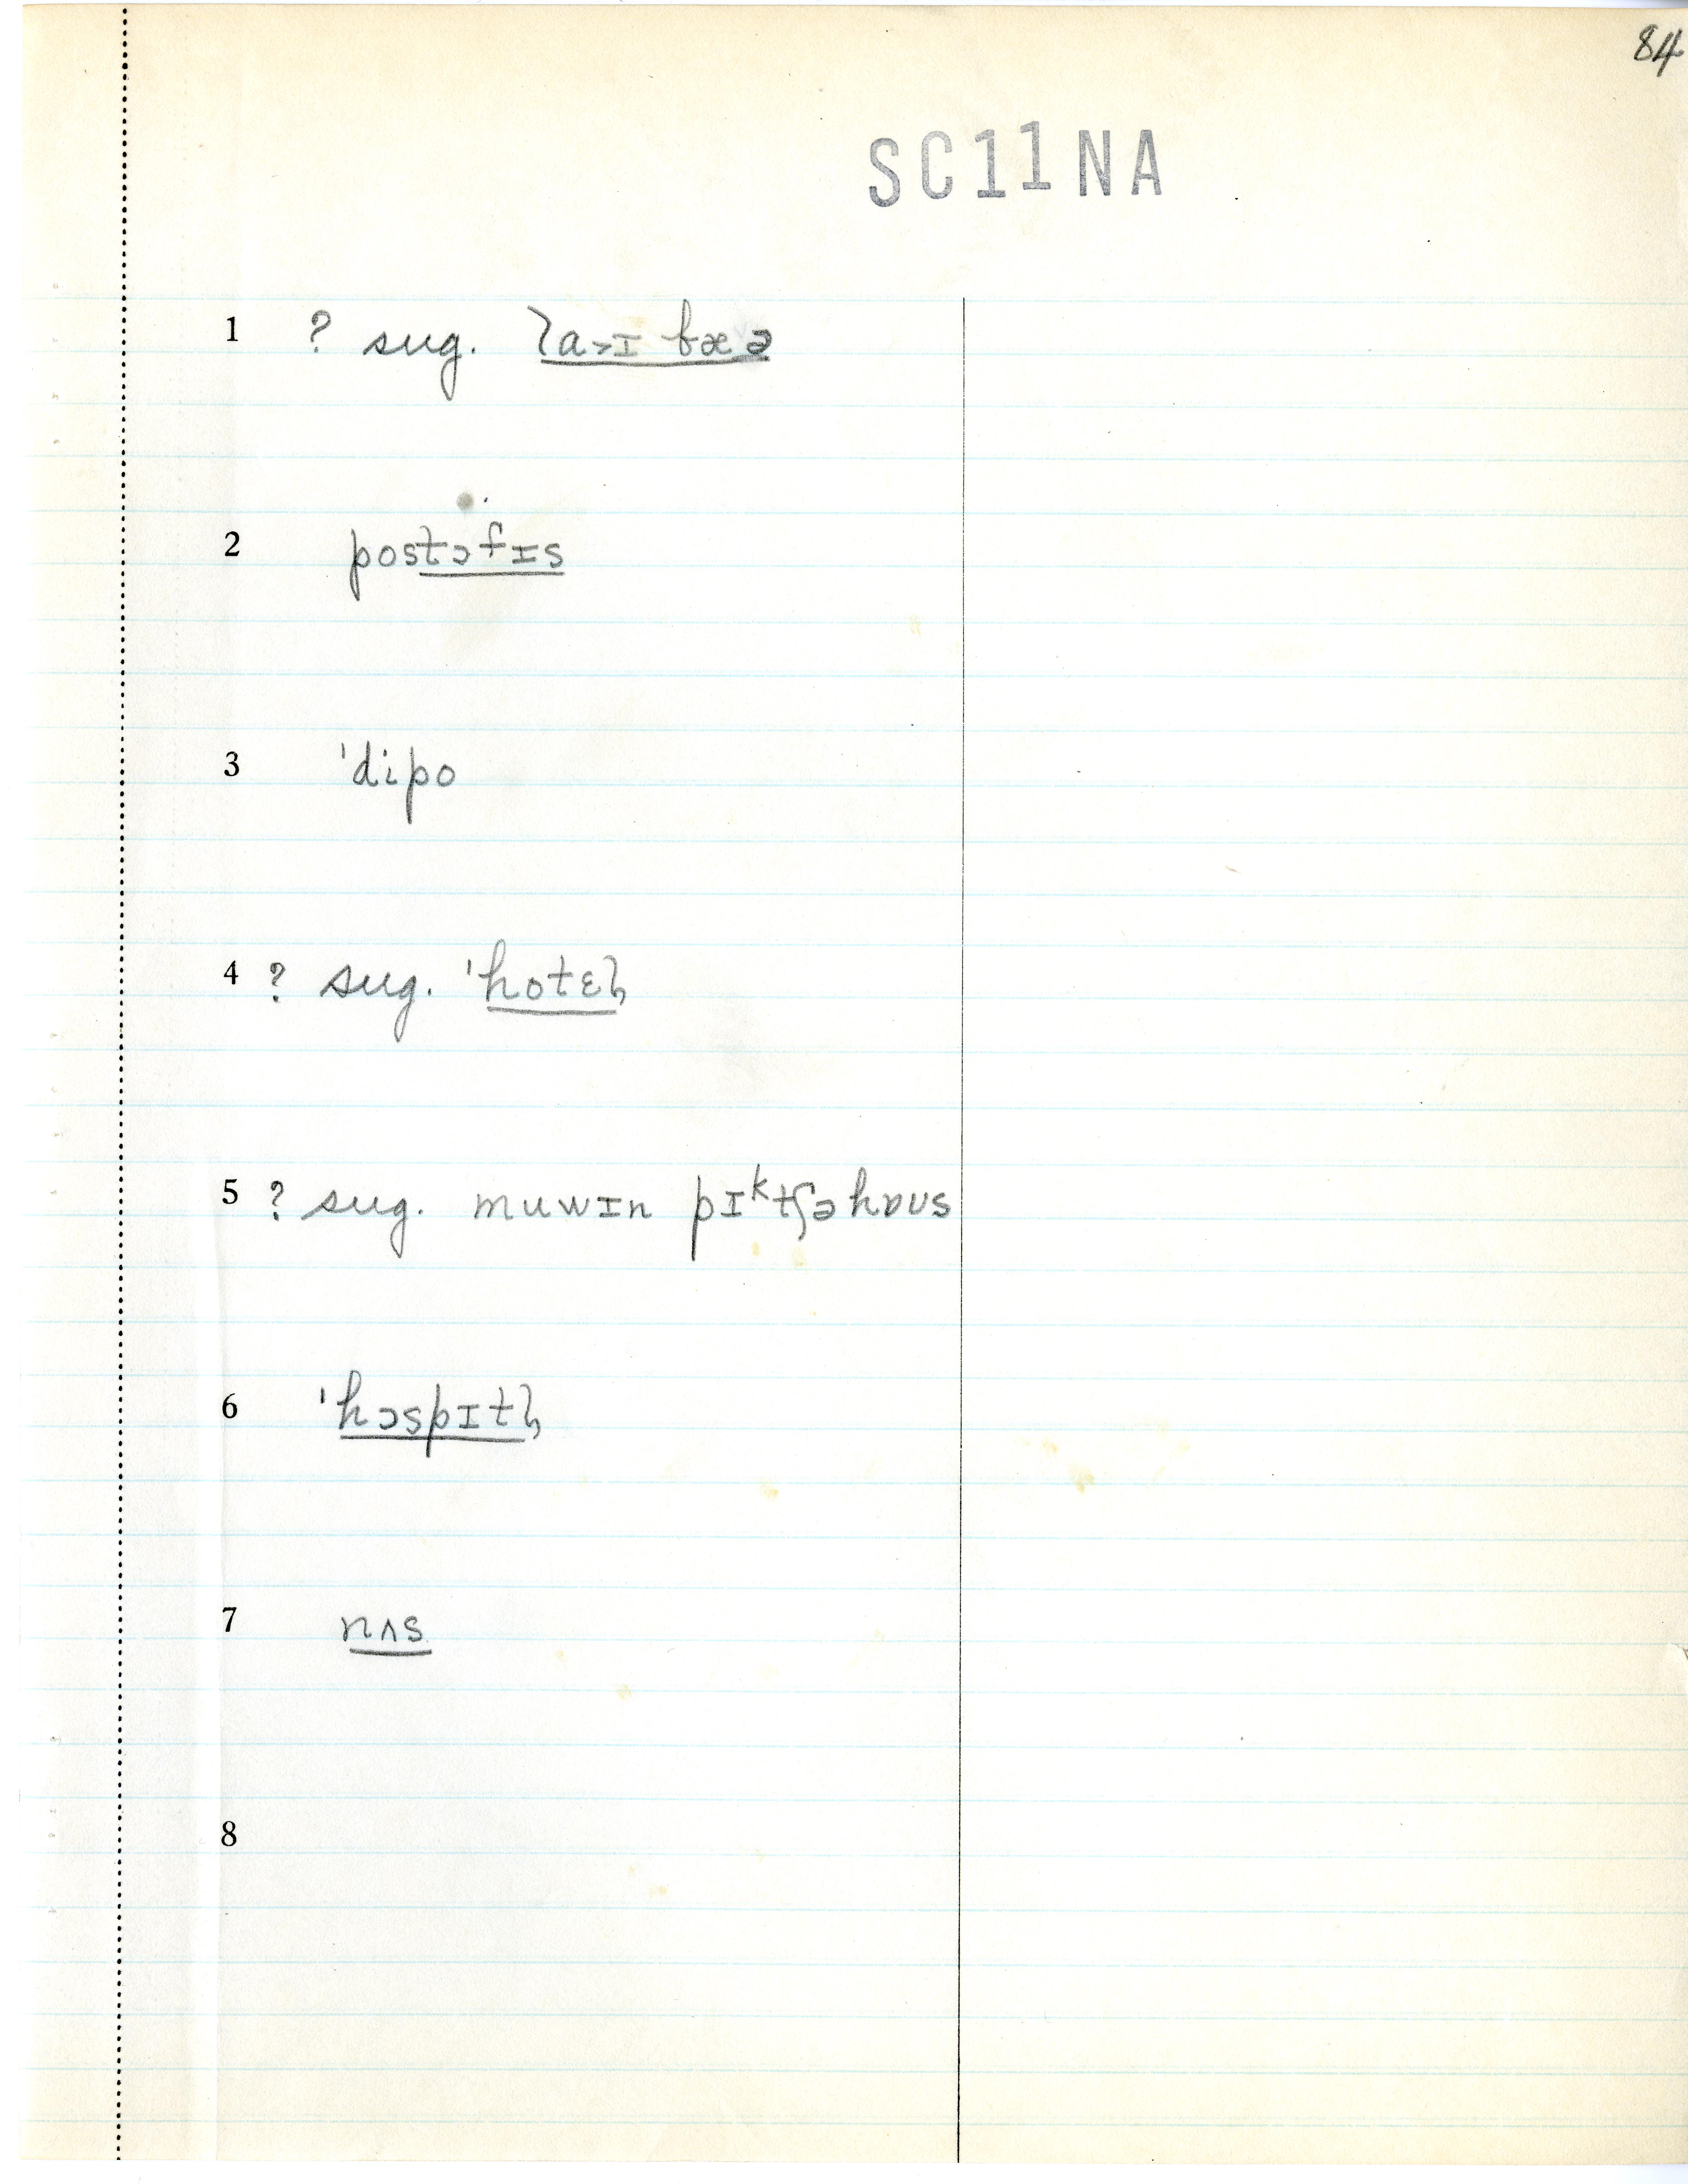 84
SC11NA
1 ? sug. laˑɪ bræə
2 postɔfɪs
3 ˈdipo
4 ? sug. ˈhotɛl̩
5 ? sug. muwɪn pɪᵏtʃəhɒʊs
6 ˈhɔspɪtl̩
7 nʌs
8